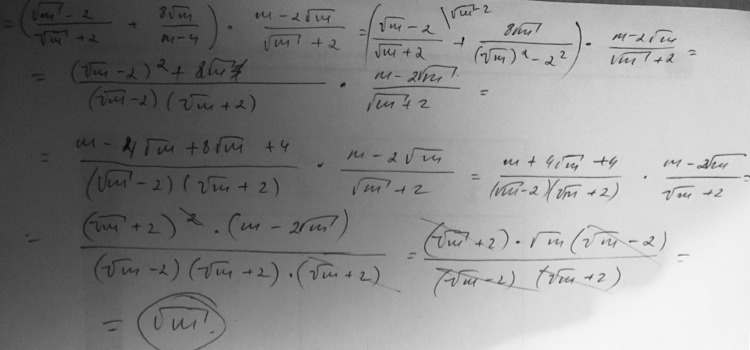 = (√m - 2 / √m + 2 + 8√m / m - 4) · m - 2√m / √m + 2 = (√m - 2 / √m + 2 \√m - 2 + 8√m / (√m)² - 2²) · m - 2√m / √m + 2 =
= (√m - 2)² + 8√m / (√m - 2) (√m + 2) · m - 2√m / √m + 2 =
= m - 4√m + 8√m + 4 / (√m - 2) (√m + 2) · m - 2√m / √m + 2 = m + 4√m + 4 / (√m - 2)(√m + 2) · m - 2√m / √m + 2 =
= (√m + 2)² · (m - 2√m) / (√m - 2) (√m + 2) · (√m + 2) = (√m + 2) · √m (√m - 2) / (√m - 2) (√m + 2) =
= √m.